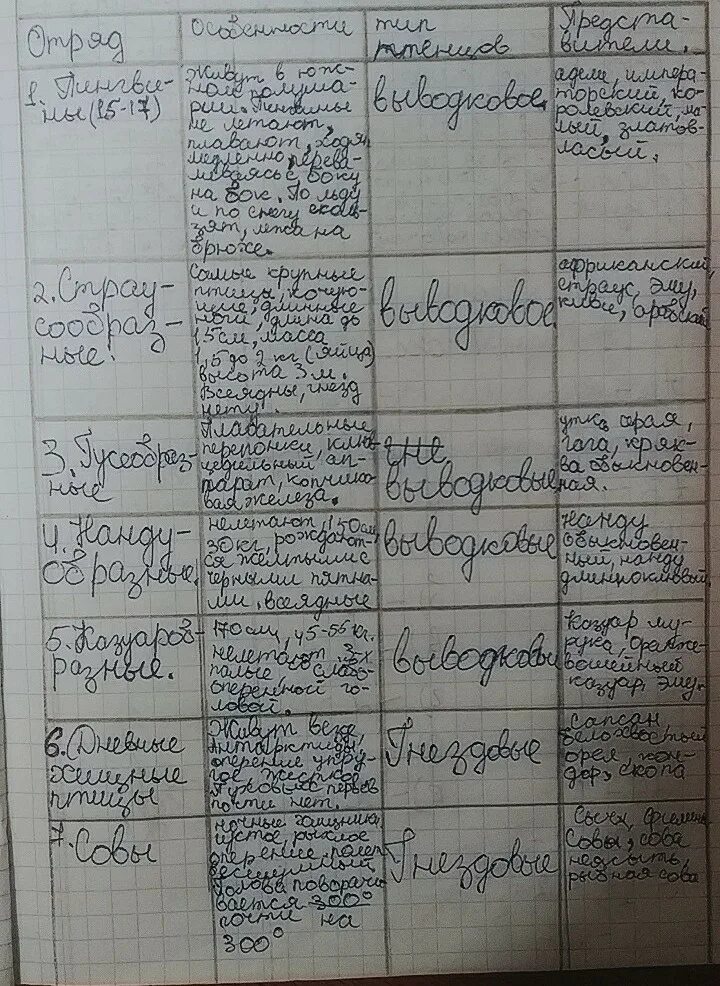 Отряд
Особенности
тип
птенцов
Предста-
вители.
1. Пингви-
ны (15-17)
Живут в юж-
ном полуша-
рии. Пингвины
не летают,
плавают, ходят
медленно, перева-
ливаясь с боку
на бок. По льду
и по снегу сколь-
зят, лежа на
брюхе.
выводковое.
адели, импера-
торский, ко-
ролевский, ма-
лый, златов-
ласый.
2. Страу-
сообраз-
ные.
Самые крупные
птицы, кочую-
щие, длинные
ноги, длина до
15 см, масса
1,5 до 2 кг (яйца)
высота 3 м.
Всеядны, гнезд
нету.
выводковое.
африканский
страус, эму,
киви,
3. Гусеобраз-
ные
Плавательные
перепонки,
цедильный ап-
парат, копчико-
вая железа.
гне
выводковые
утка серая,
гага, кряк-
ва обыкновен-
ная.
4. Нанду-
образные.
нелетают, 150 см,
30 кг, рождают-
ся желтыми с
черными пятна-
ми. всеядные
выводковые
нанду
обыкновен-
ный, нанду
длинноклювый.
5. Казуаров-
разные.
170 см, 45-55 кг.
нелетают, 3-х
палые, со слабо
оперенной го-
ловой.
выводковы
Казуар му-
рука, оранже-
вошейный
казуар, эму.
6. Дневные
хищные
птицы
Живут везде,
оперение упру-
гое, жесткое.
Пуховых перьев
почти нет.
Гнездовые
сапсан,
белохвостый
орел, кон-
дор, скопа
7. Совы
ночные хищники
густое, рыхлое
оперение, полет
бесшумный,
голова поворачи-
вается 300°
почти на
300°
Гнездовые
Сычи, филины
Совы, сова
неясыть,
рыбная сова